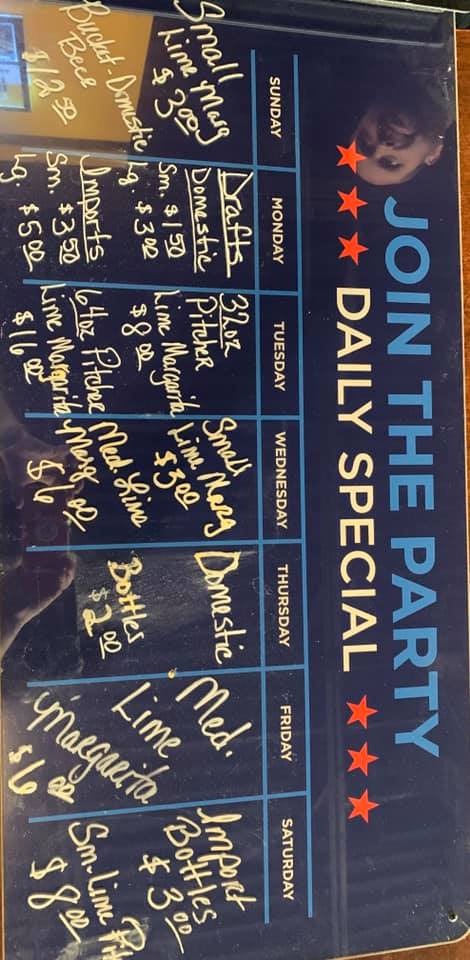 JOIN THE PARTY
DAILY SPECIAL
SUNDAY
Small
Lime Marg
$3.00
Bucket-Domestic
Beer
$12.50
MONDAY
Drafts
Domestic
Sm. $1.50
Lg. $3.00
Imports
Sm. $3.50
Lg. $5.00
TUESDAY
32oz
Pitcher
Lime Margarita
$8.00
64oz Pitcher
Lime Margarita
$16.00
WEDNESDAY
Small
Lime Marg
$3.00
Med Lime
Marg
$6.00
THURSDAY
Domestic
Bottles
$2.00
FRIDAY
Med.
Lime
Margarita
$6.00
SATURDAY
Import
Bottles
$3.00
Sm. Lime
$8.00